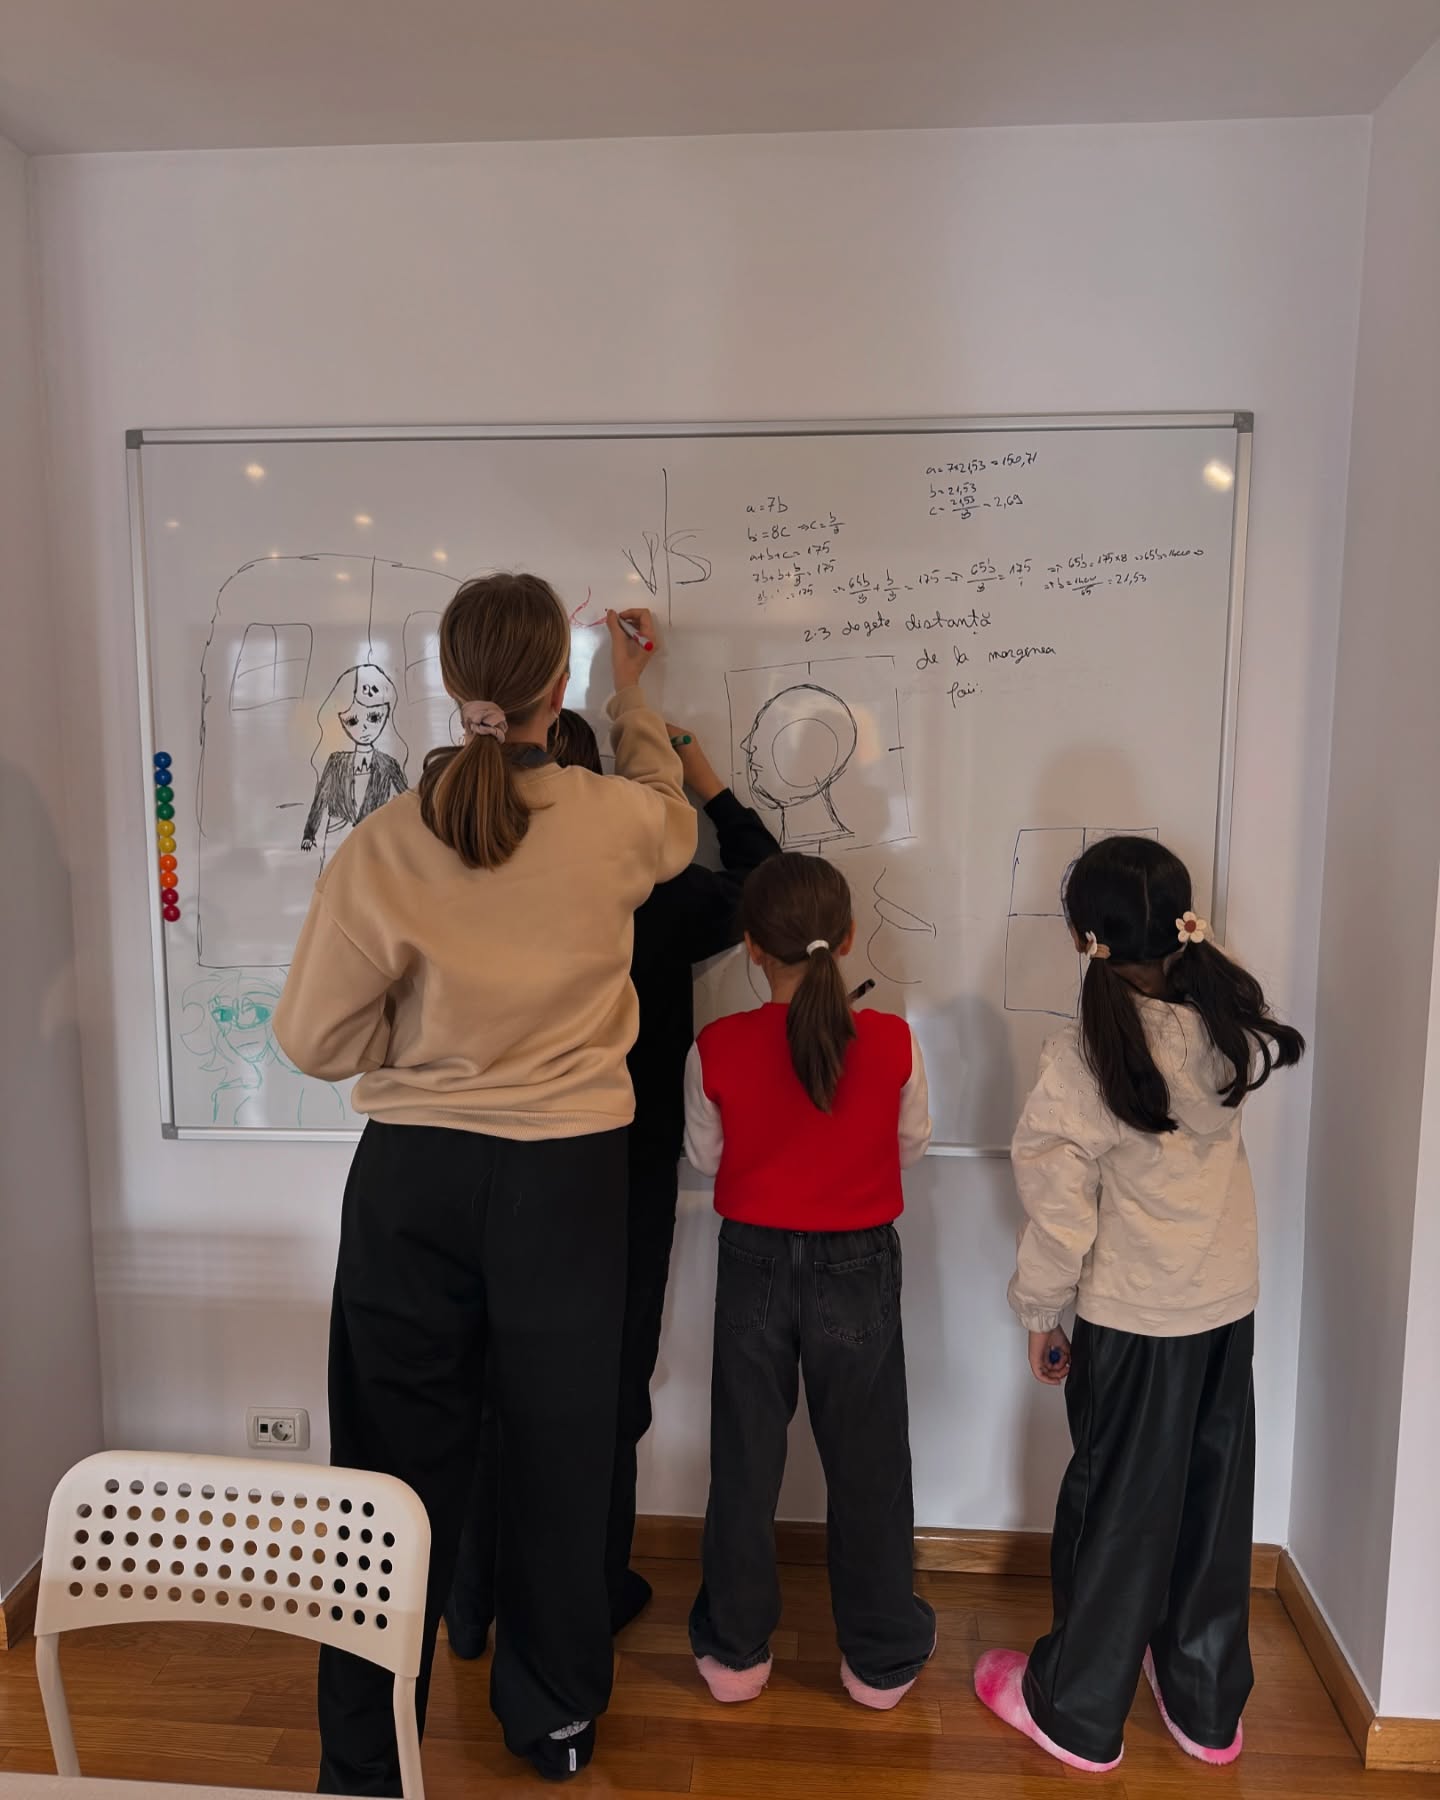 VS
a = 7b
b = 8c => c = b/8
a+b+c = 175
7b+b+b/8 = 175
=> 64b/8 + b/8 = 175 => 65b/8 = 175 => 65b = 175×8 => 65b = 1400 =>
=> b = 1400/65 = 21,53
a = 7×21,53 = 150,71
b = 21,53
c = 21,53/8 = 2,69
2-3 degete distanță
de la marginea
foii.